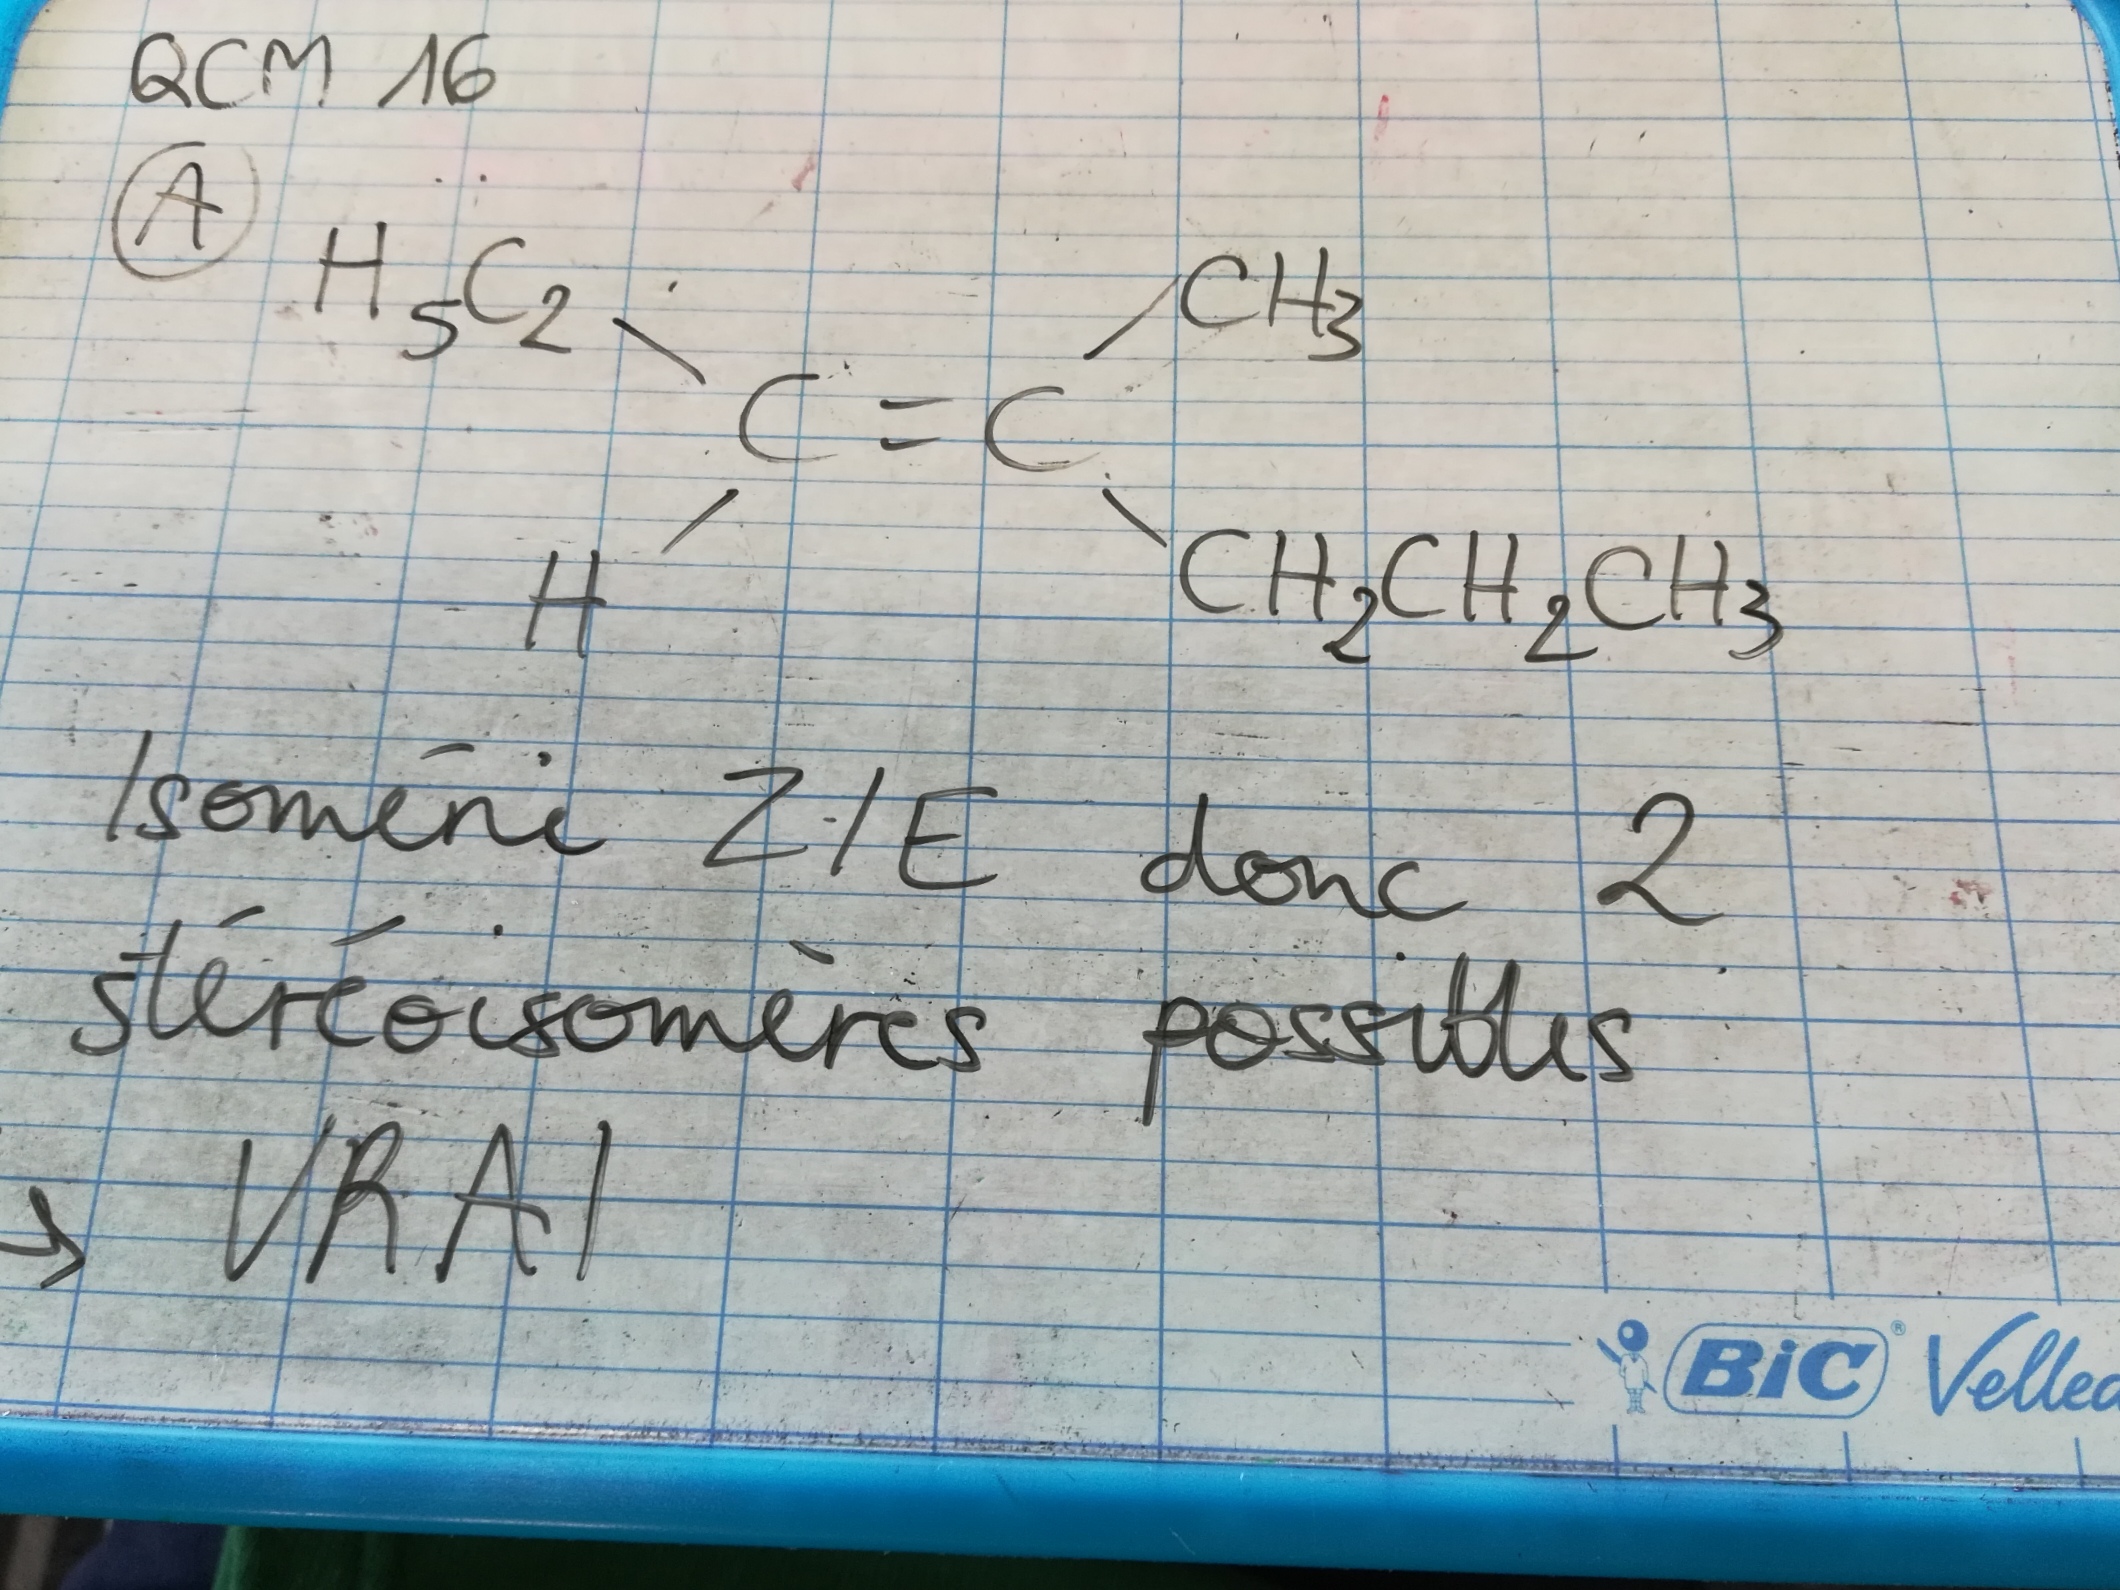 QCM 16
A
H5C2 CH3
C = C
H CH2CH2CH3
Isoméri Z/E donc 2
stéréoisomères possibles
→ VRAI
BiC® Velled